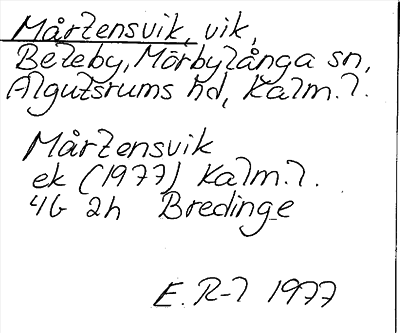 Mårtensvik, vik,
Beteby, Mörbylånga sn,
Algutsrums hd, Kalm.l.
Mårtensvik
ek (1977) Kalm.l.
4G 2h Bredinge
E. R-l 1977